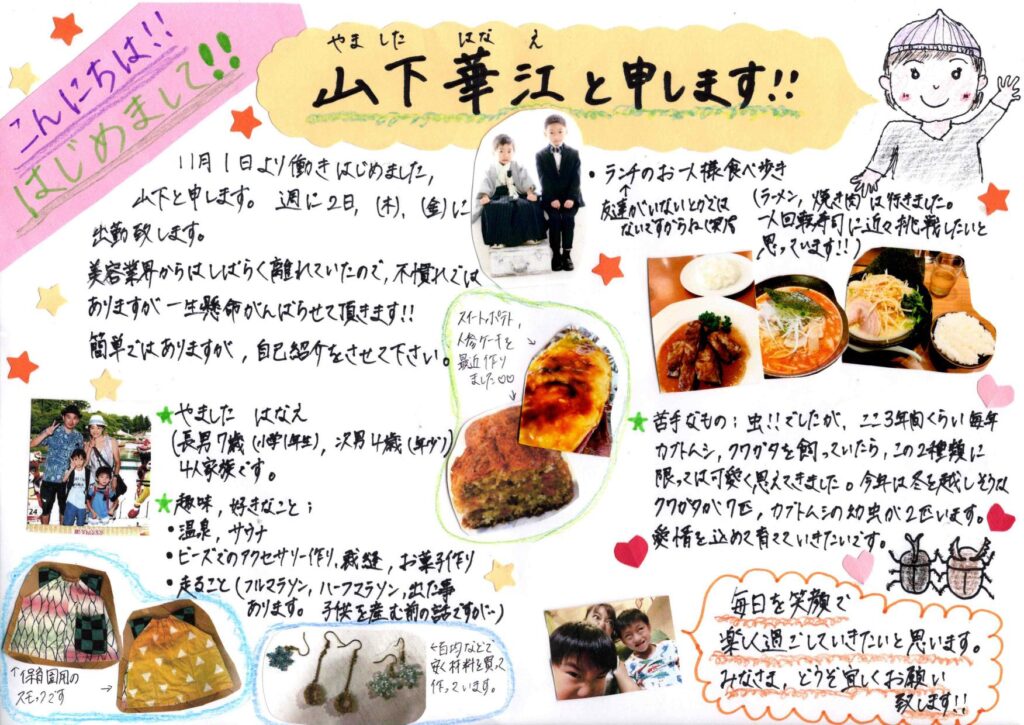 こんにちは!!
はじめまして!!
やました はなえ
山下華江と申します!!
11月1日より働きはじめました,
山下と申します。 週に2日, (木), (金)に
出勤致します。
美容業界からはしばらく離れていたので,不慣れでは
ありますが一生懸命がんばらせて頂きます!!
簡単ではありますが,自己紹介をさせて下さい。
★やました はなえ
(長男7歳(小学1年生), 次男4歳(年少))
4人家族です。
★趣味,好きなこと;
・温泉, サウナ
・ビーズでのアクセサリー作り,裁縫, お菓子作り
・走ること(フルマラソン, ハーフマラソン,出た事
あります。 子供を産む前の話ですが…)
↑保育園用の
スモックです→
←百均などで
安く材料を買って
作っています。
スイートポテト,
人参ケーキを
最近作り
ました♡♡
・ランチのお一人様食べ歩き
↑
友達がいないとかでは
ないですからね(笑)
(ラーメン, 焼き肉は行きました。
一人回転寿司に近々挑戦したいと
思っています!!)
★苦手なもの; 虫!!でしたが, ここ3年間くらい毎年
カブトムシ, クワガタを飼っていたら,この2種類に
限っては可愛く思えてきました。今年は冬を越しそうな
クワガタが7匹, カブトムシの幼虫が2匹います。
愛情を込めて育てていきたいです。
毎日を笑顔で
楽しく過ごしていきたいと思います。
みなさま, どうぞ宜しくお願い
致します!!
24